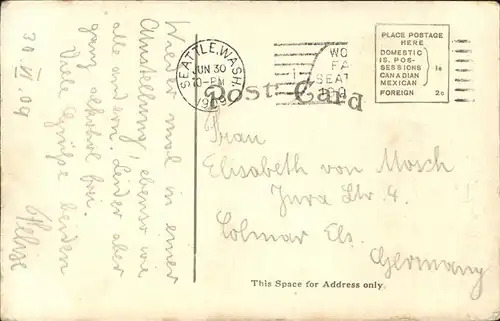 30.VI.09
Wieder mal in einer
Ausstellung, ebenso wie
alle andern. Leider aber
ganz alkohol frei.
Viele Grüße beiden
SEATTLE, WASH.
JUN 30
10-PM
1909
WO
FA
SEAT
190
Post Card
PLACE POSTAGE
HERE
DOMESTIC
IS. POS-
SESSIONS
CANADIAN
MEXICAN
1c
FOREIGN 2c
Frau
Elisabeth von Mosch
Jura Str. 4.
Colmar Els.
Germany
This Space for Address only.